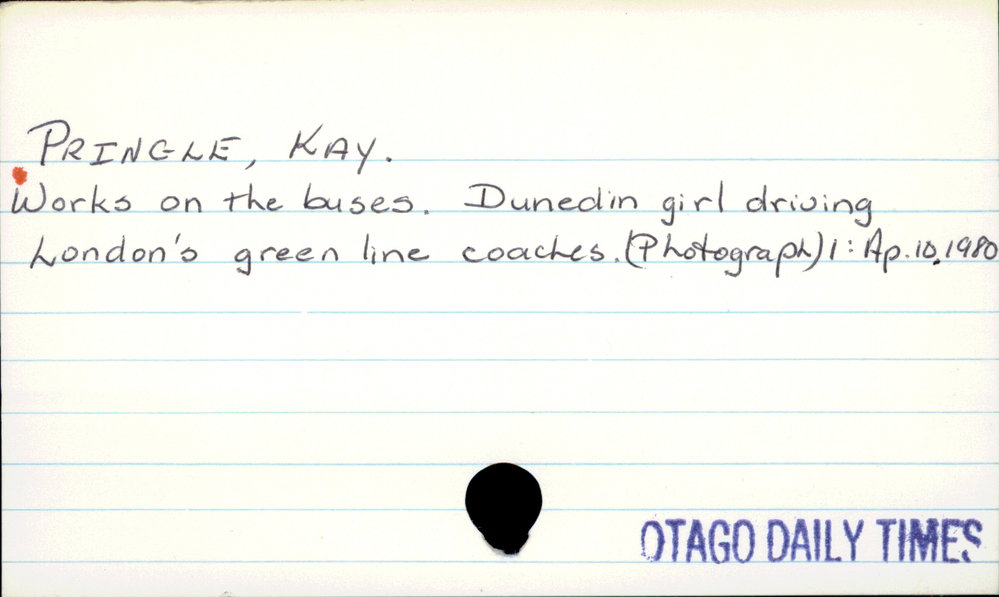 PRINGLE, KAY.
Works on the buses. Dunedin girl driving
London's green line coaches. (Photograph) 1: Ap. 10, 1980
OTAGO DAILY TIMES